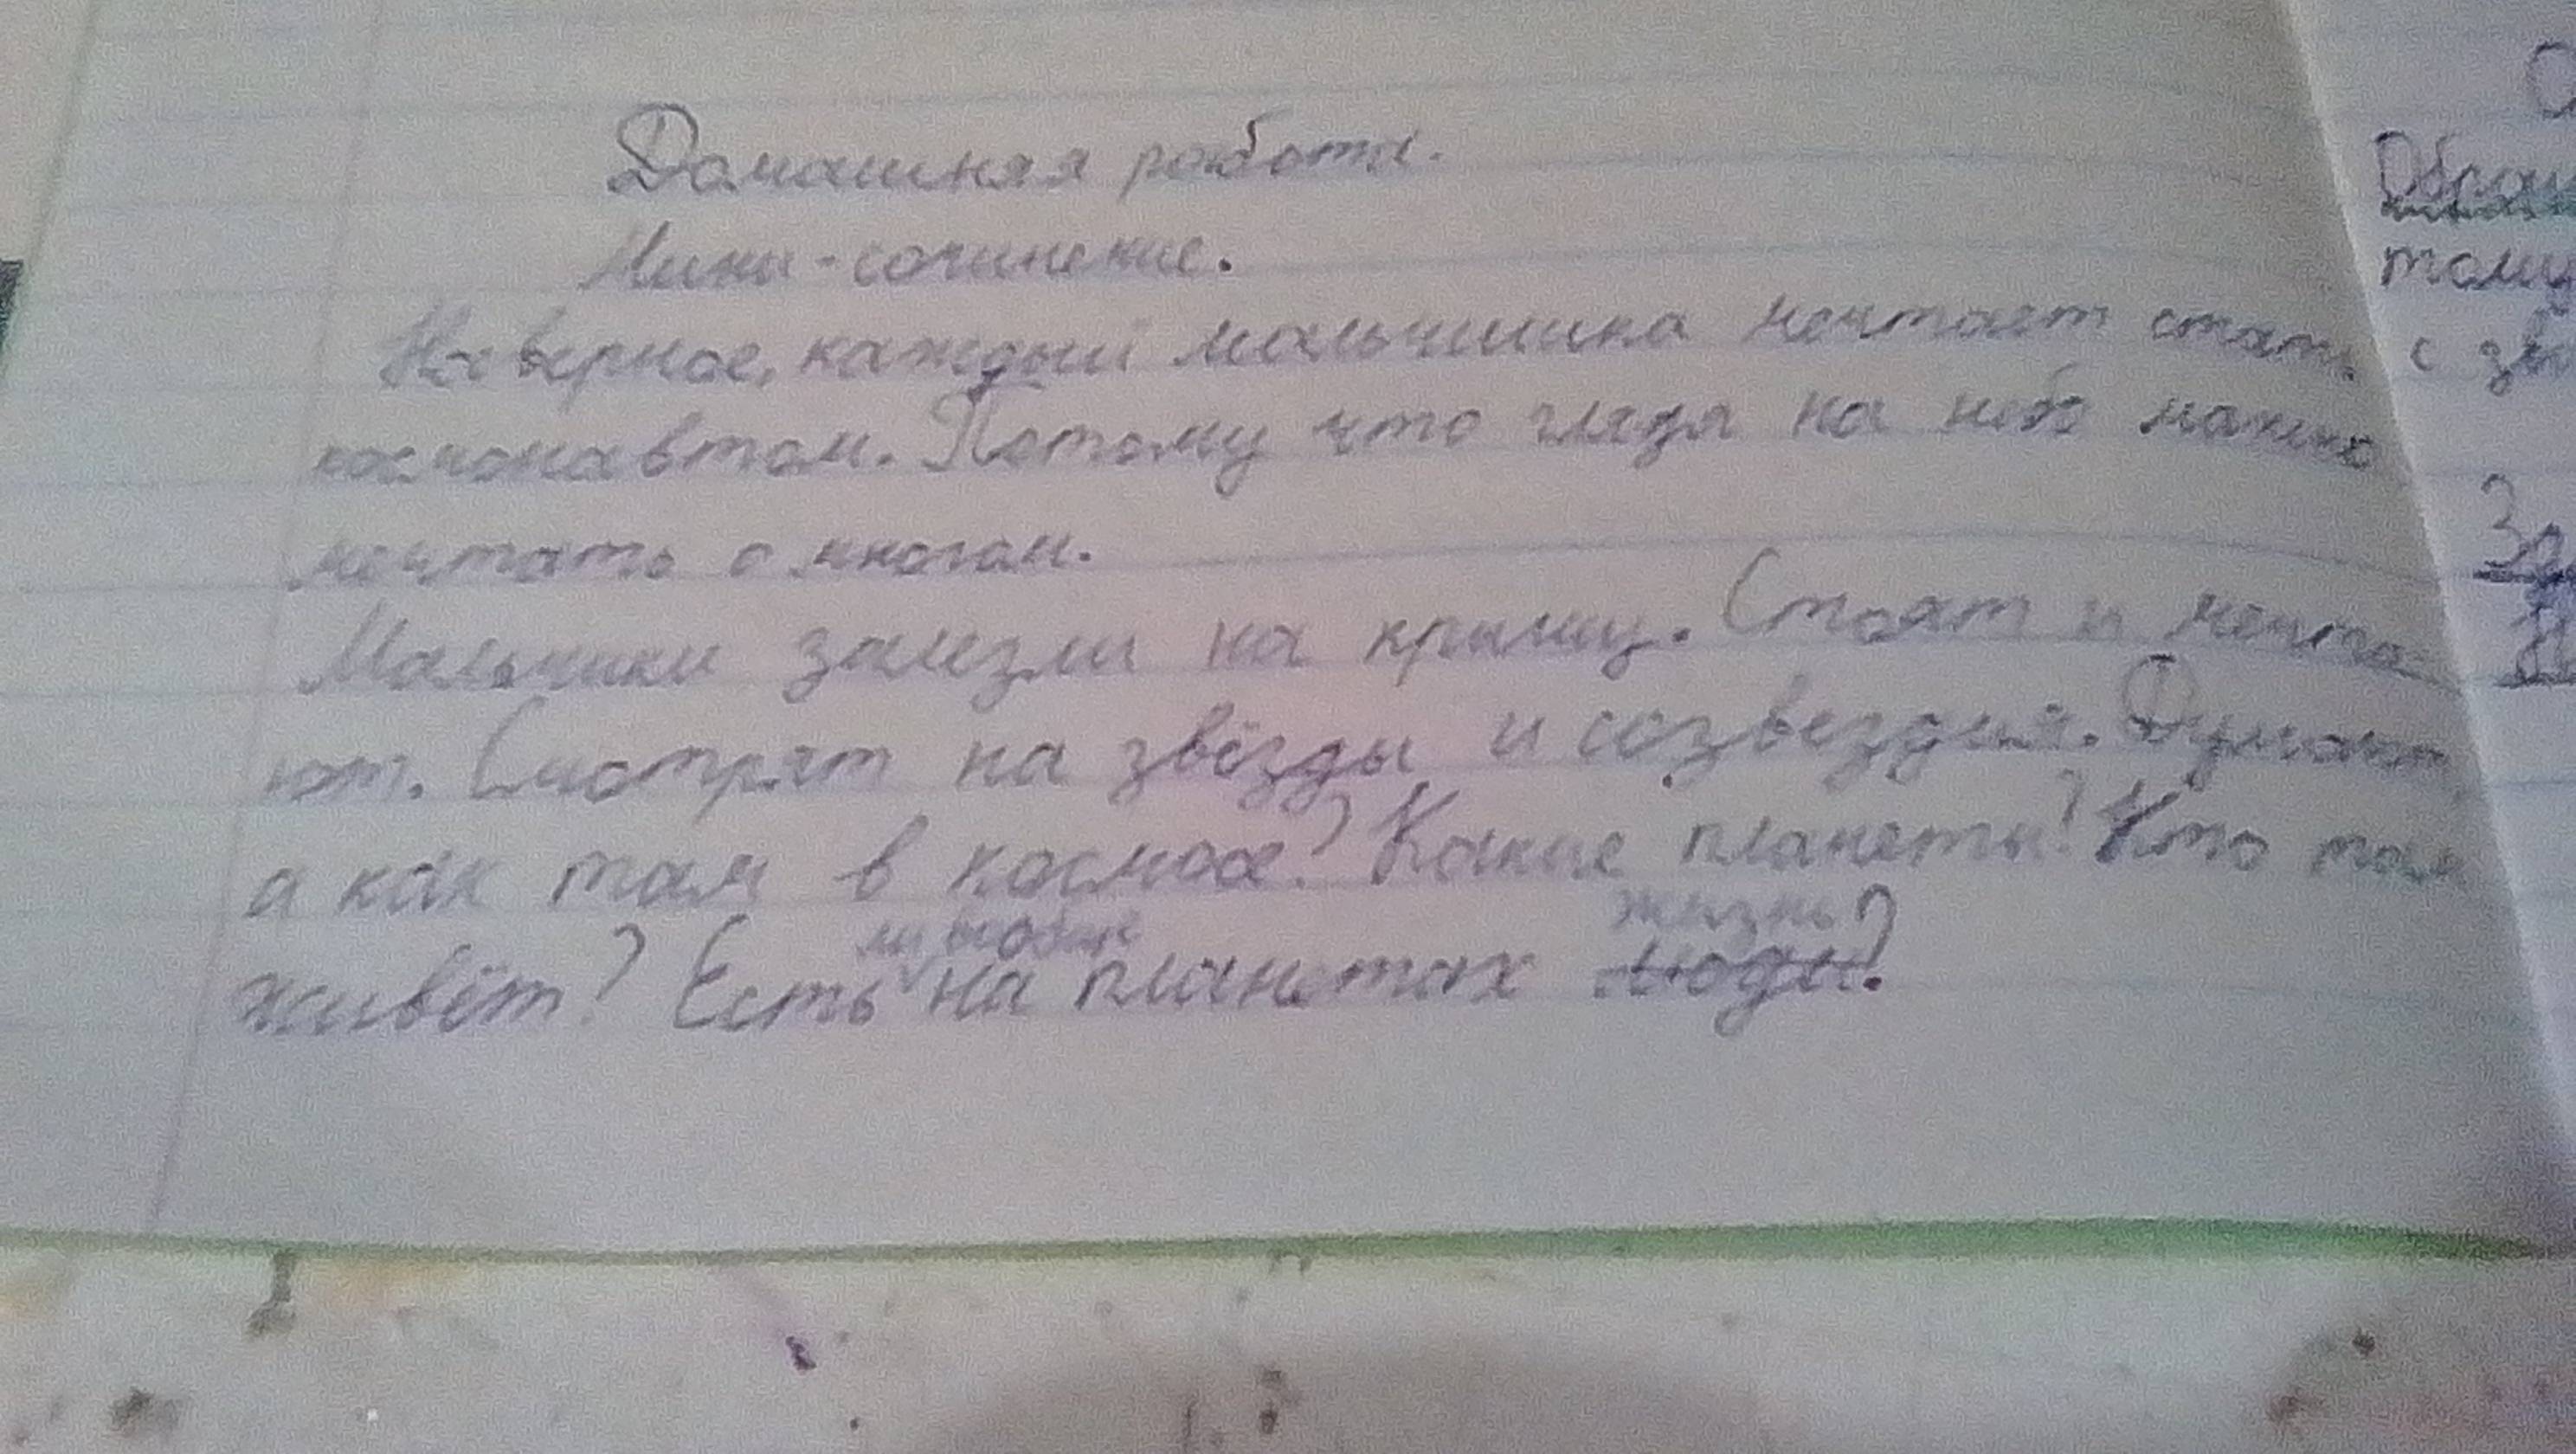 Домашняя работа.
Мини-сочинение.
Наверное, каждый мальчишка мечтает стать
космонавтом. Потому что глядя на небо можно
мечтать о многом.
Мальчики залезли на крышу. Стоят и мечта-
ют. Смотрят на звёзды и созвездия. Думают,
а как там в космосе? Какие планеты? Кто там
живёт? Есть ли вообще на планетах люди? жизнь?
Обращ
тому
с зв